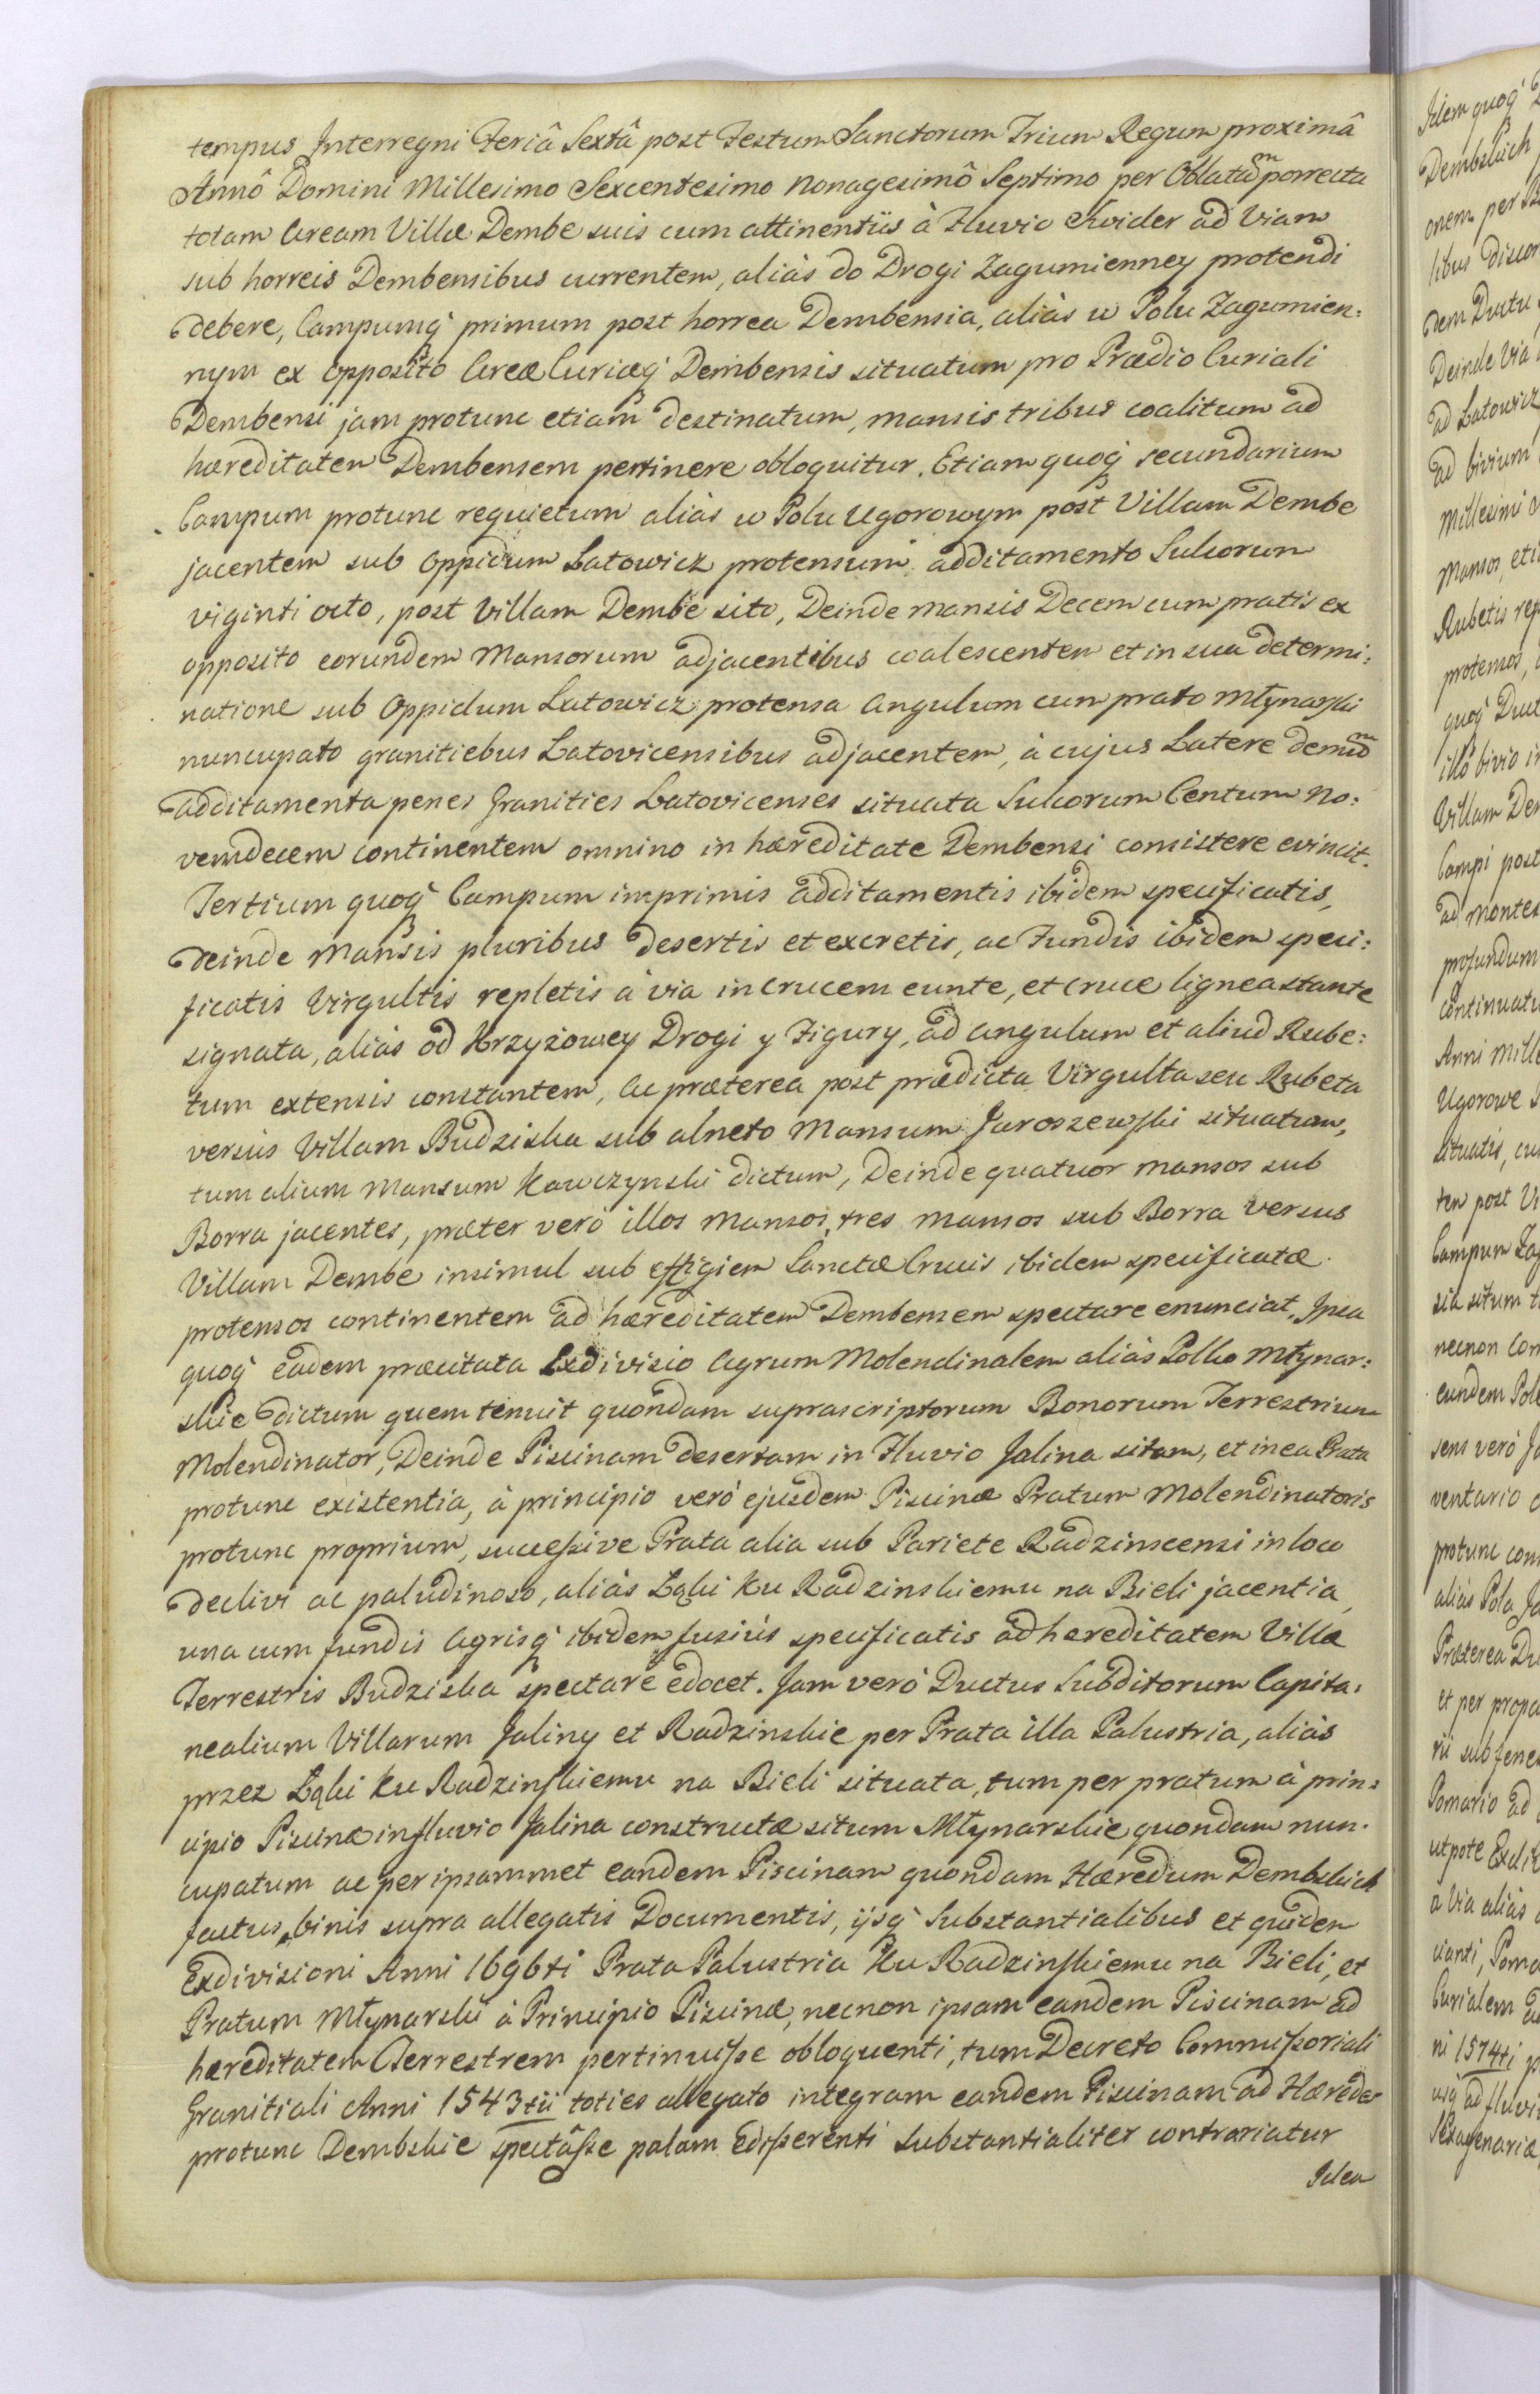 tempus Interregni Feriâ Sextâ post Festum Sanctorum Trium Regum proximâ
Annô Domini Millesimo Sexcentesimo Nonagesimô Septimo per Oblatam porrecta
totam Aream Villæ Dembe suis cum attinentiis à Fluvio Swider ad Viam
sub horreis Dembensibus currentem, aliàs do Drogi Zagumienney protendi
debere, Campumq̃ primum post horrea Dembensia, aliàs w Polu Zagumien:
nym ex opposito Areæ Curiæq̃ Dembensis situatum pro Prædio Curiali
Dembensi jam protunc etiam destinatum, mansis tribus coalitum ad
hæreditatem Dembensem pertinere obloquitur. Etiam quoq̃ secundarium
Campum protunc requietum aliàs w Polu Ugorowym post Villam Dembe
jacentem sub Oppidum Latowicz protensum additamento Sulcorum
viginti octo, post Villam Dembe sito, Deinde mansis Decem cum pratis ex
opposito eorundem Mansorum adjacentibus coalescentem et in sua determi:
natione sub Oppidum Latowicz protensa Angulum cum prato Młynarski
nuncupato granitiebus Latovicensibus adjacentem, à cujus Latere demum
additamenta penes Granities Latovicenses situata Sulcorum Centum No:
vemdecem continentem omnino in hæreditate Dembensi consistere evincit.
Tertium quoq̃ Campum imprimis additamentis ibidem specificatis,
deinde Mansis pluribus desertis et excretis, ac Fundis ibidem speci:
ficatis Virgultis repletis à via in Crucem eunte, et Cruce lignea stante
signata, aliàs od Krzyżowey Drogi y Figury, ad angulum et aliud Rube:
tum extensis constantem, Ac præterea post prædicta Virgulta seu Rubeta
versùs Villam Budziska sub alneto Mansum Jaroszewski situatum,
tum alium Mansum Kawczynski dictum, Deinde quatuor mansos sub
Borra jacentes, præter verò illos Mansos, tres mansos sub Borra versus
Villam Dembe insimul sub effigiem Sanctæ Crucis ibidem specificatæ
protensos continentem ad hæreditatem Dembensem spectare enunciat, Ipsa
quoq̃ eadem præcitata Exdivisio Agrum Molendinalem aliàs Polko Młynar:
skie dictum quem tenuit quondam suprascriptorum Bonorum Terrestrium
Molendinator, Deinde Piscinam desertam in Fluvio Jalina sitam, et in ea Prata
protunc existentia, à principio verò ejusdem Piscinæ Pratum Molendinatoris
protunc proprium, successive Prata alia sub Pariete Radzinscensi in loco
declivi ac paludinoso, aliàs Łąki ku Radzinskiemu na Bieli jacentia,
una cum fundis Agrisq̃ ibidem fusiùs specificatis ad hæreditatem Villæ
Terrestris Budziska spectare edocet. Jam verò Ductus Subditorum Capita:
nealium Villarum Jaliny et Radzinskie per Prata illa Palustria, aliàs
przez Łąki ku Radzinskiemu na Bieli situata, tum per pratum à prin:
cipio Piscinæ in fluvio Jalina constructæ situm Młynarskie quondam nun:
cupatum ac per ipsammet eandem Piscinam quondam Hæredum Dembskich
factus, binis supra allegatis Documentis, ijsq̃ Substantialibus et quidem
Exdivisioni Anni 1696ti Prata Palustria Ku Radzinskiemu na Bieli, et
Pratum Młynarski à Principio Piscinæ, necnon ipsam eandem Piscinam ad
hæreditatem Terrestrem pertinuisse obloquenti, tum Decreto Commissoriali
Granitiali Anni 1543tii toties allegato integram eandem Piscinam ad Hæredes
protunc Dembskie spectâsse palam Edisserenti substantialiter contrariatur
Idem